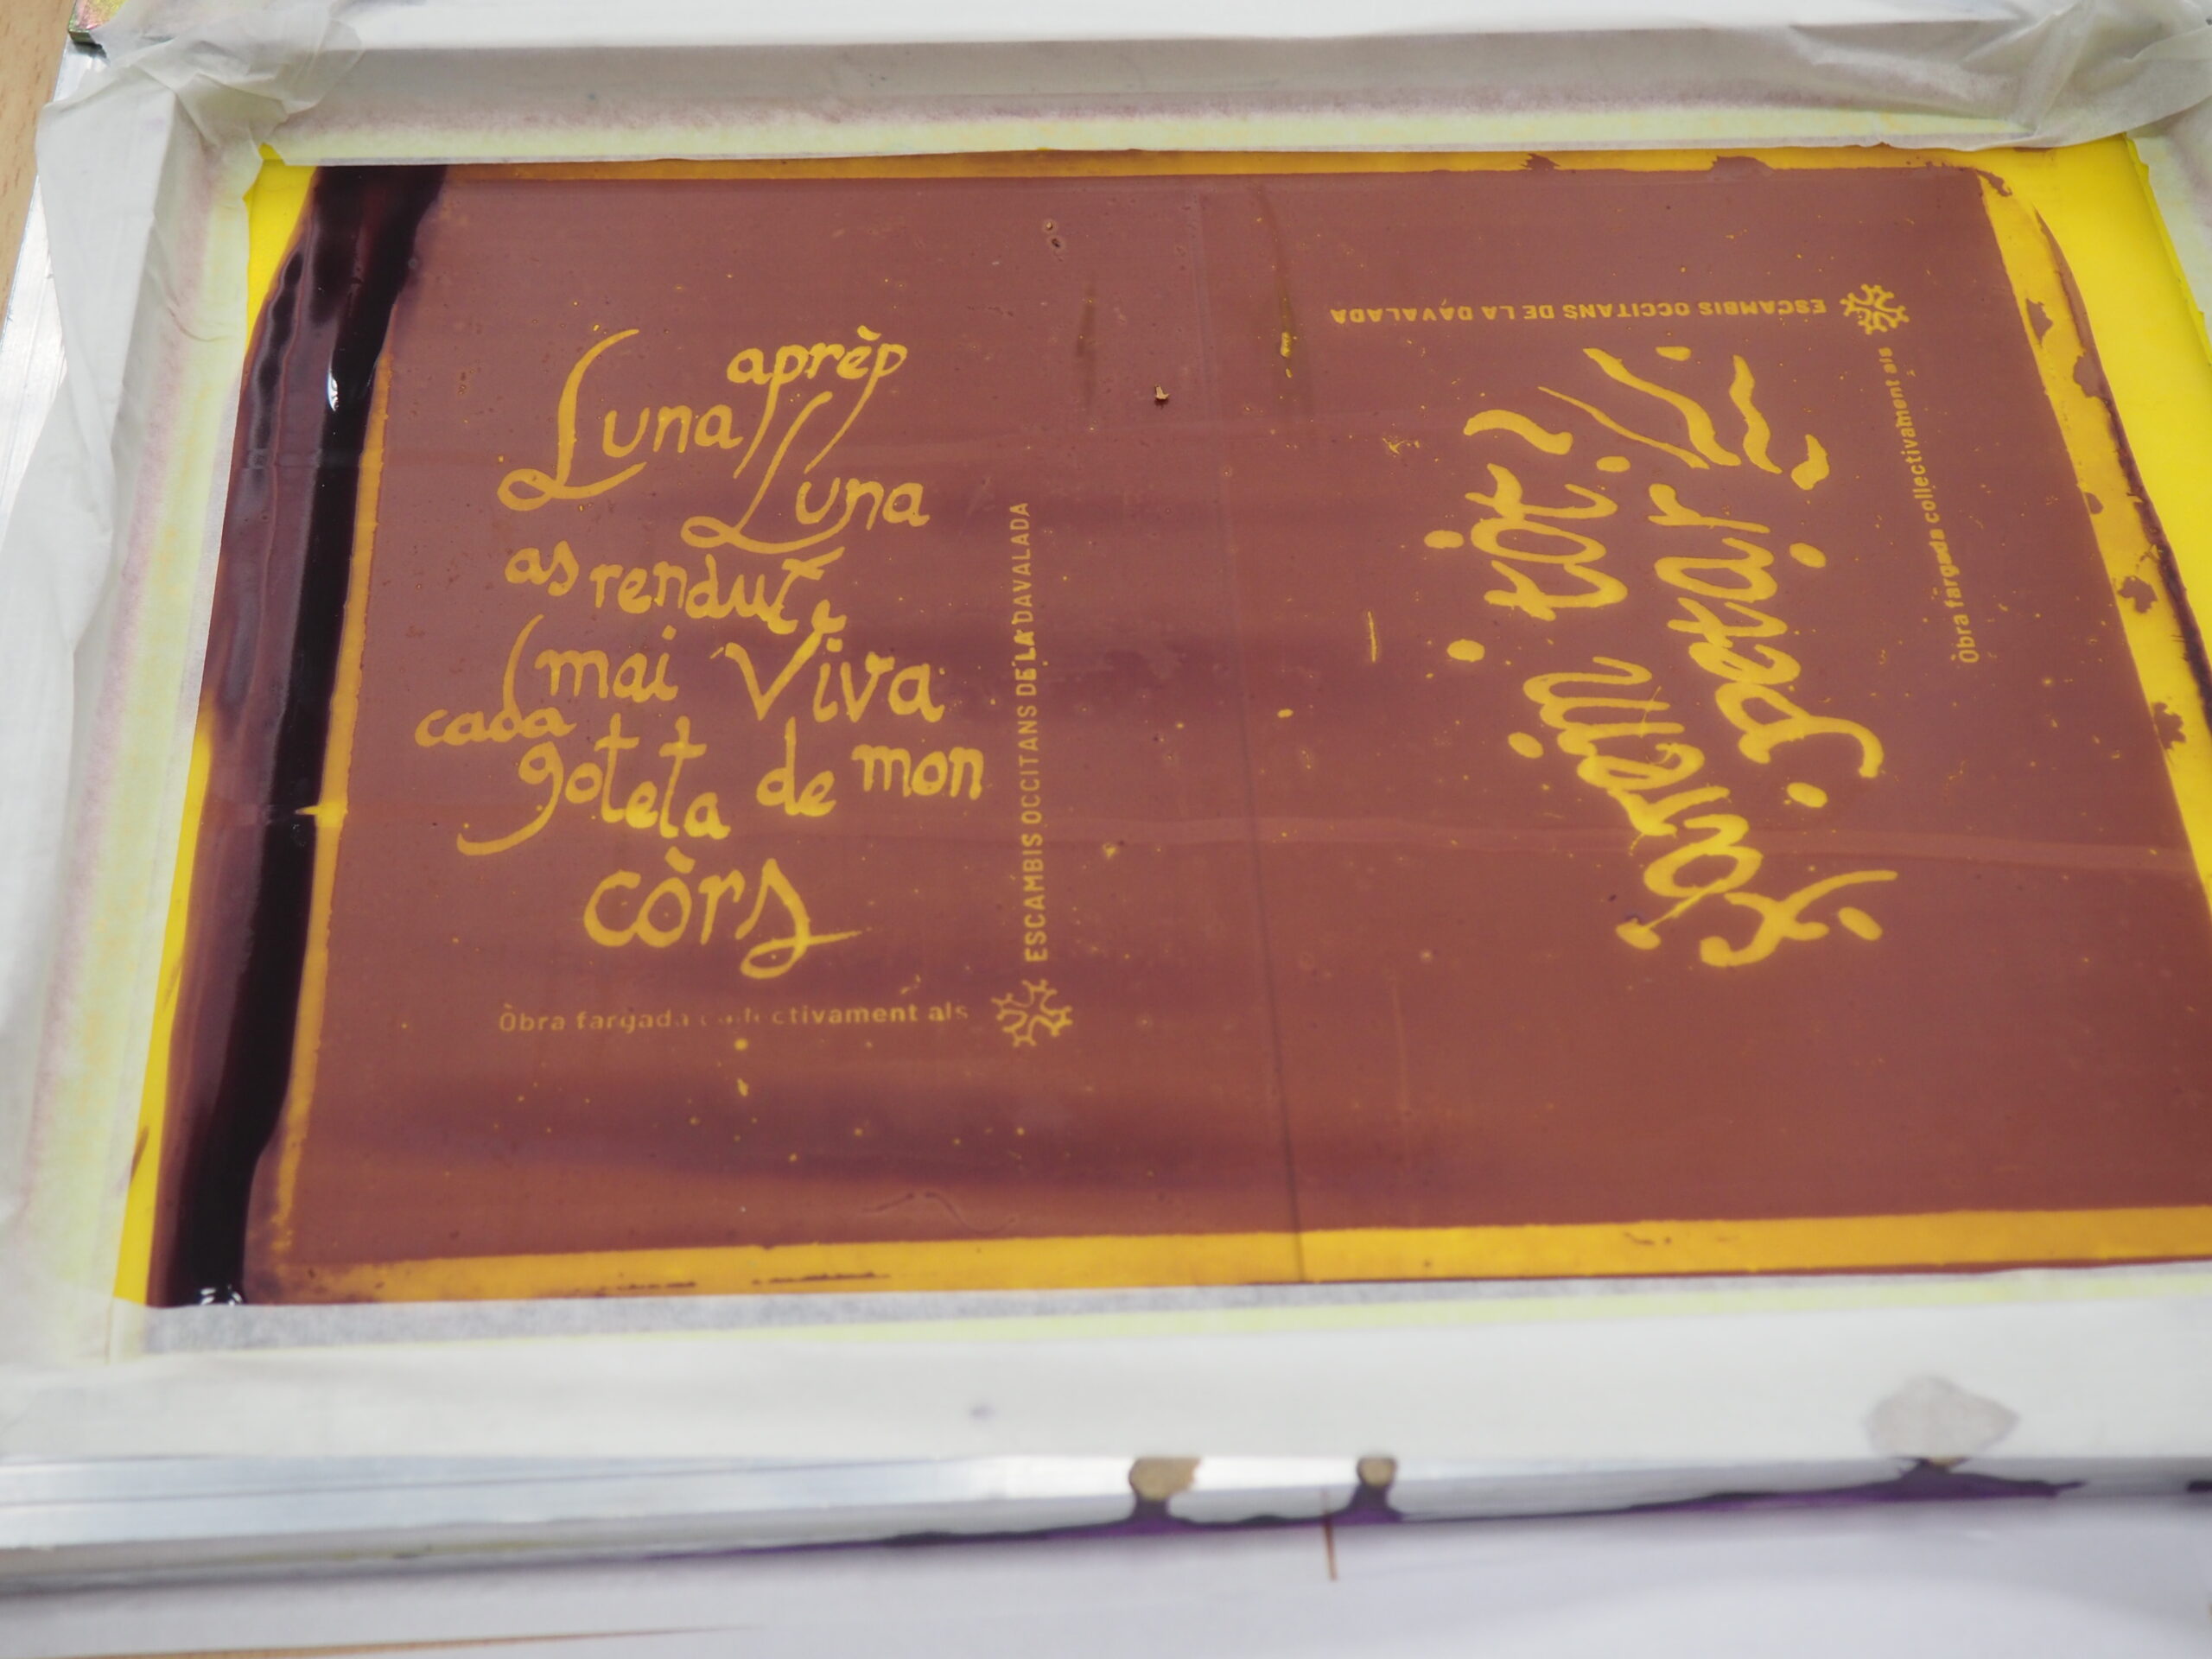 Luna aprèp
Luna
as rendut
mai Viva
cada
goteta de mon
còrs
Òbra fargada collectivament als
ESCAMBIS OCCITANS DE LA DAVALADA
Farem tot
petar
Òbra fargada collectivament als
ESCAMBIS OCCITANS DE LA DAVALADA